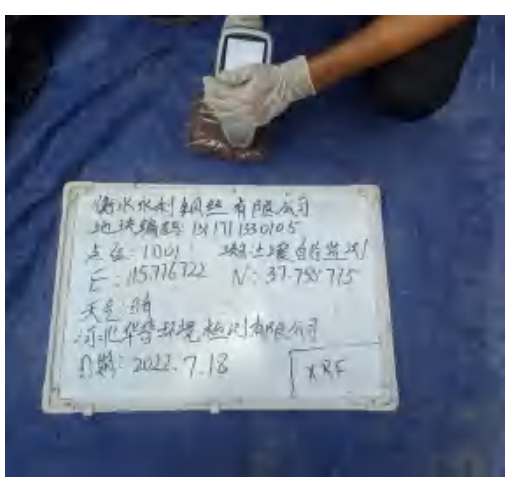 衡水水利钢丝有限公司
地块编码:1311711330105
点位:1D01 项:土壤自行监测
E:115.776722 N:37.755775
天气:晴
河北华普环境检测有限公司
日期:2022.7.18
XRF